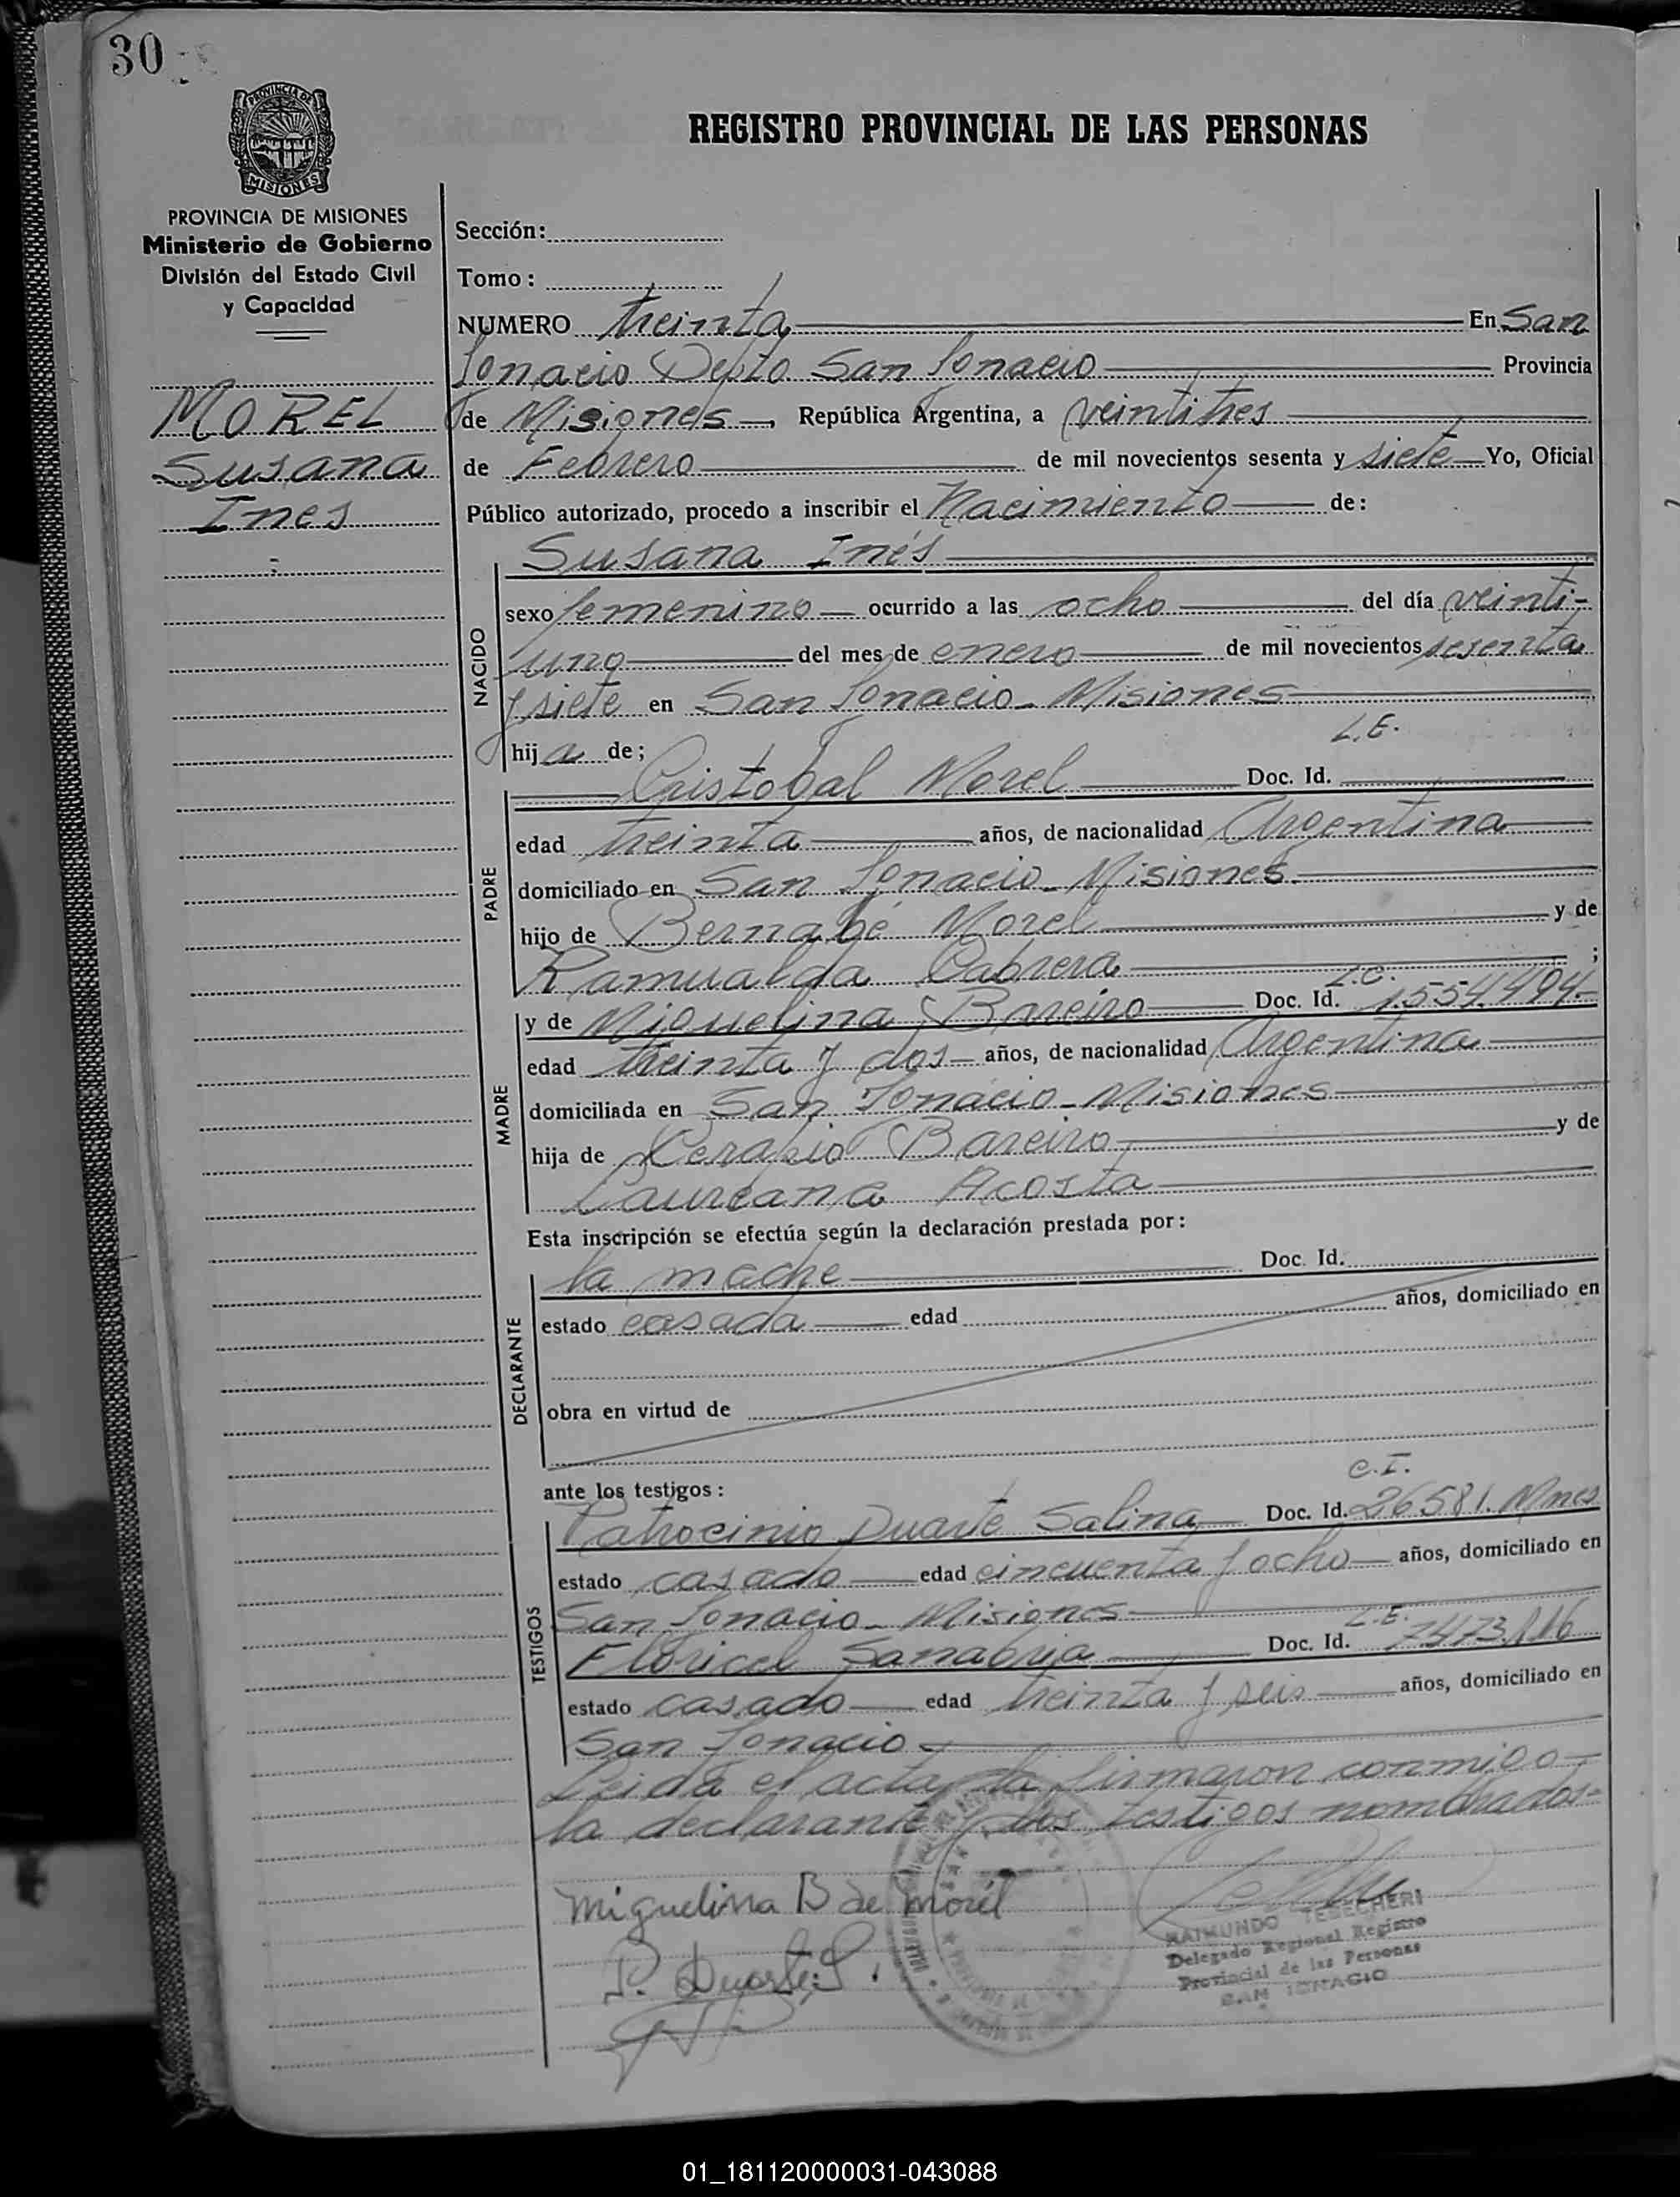 30
PROVINCIA DE
MISIONES
REGISTRO PROVINCIAL DE LAS PERSONAS
PROVINCIA DE MISIONES
Ministerio de Gobierno
División del Estado Civil
y Capacidad
MOREL
Susana
Ines
Sección:
Tomo:
NUMERO treinta En San
Ignacio Depto San Ignacio Provincia
de Misiones, República Argentina, a veintitres
de Febrero de mil novecientos sesenta y siete Yo, Oficial
Público autorizado, procedo a inscribir el Nacimiento de:
Susana Inés
NACIDO
sexo femenino ocurrido a las ocho del día veinti-
uno del mes de enero de mil novecientos sesenta
y siete en San Ignacio - Misiones
hija de;
L.E.
Cristobal Morel Doc. Id.
PADRE
edad treinta años, de nacionalidad Argentina
domiciliado en San Ignacio - Misiones
hijo de Bernabé Morel y de
Ramualda Cabrera ;
L.C.
y de Miguelina Bareiro Doc. Id. 1.554.494-
MADRE
edad treinta y dos años, de nacionalidad Argentina
domiciliada en San Ignacio - Misiones
hija de Cerapio Bareiro y de
Laureana Acosta
Esta inscripción se efectúa según la declaración prestada por:
la madre Doc. Id.
DECLARANTE
estado casada edad años, domiciliado en
obra en virtud de
ante los testigos:
C.I.
Patrocinio Duarte Salina Doc. Id. 26581. Mnes
TESTIGOS
estado casado edad cincuenta y ocho años, domiciliado en
San Ignacio - Misiones
L.E.
Floricel Sanabria Doc. Id. 7473.116
estado casado edad treinta y seis años, domiciliado en
San Ignacio
Leida el acta, la firmaron conmigo
la declarante y los testigos nombrados=
Miguelina B de Morél
P. Duarte S.
RAIMUNDO TESECHERI
Delegado Regional Registro
Provincial de las Personas
SAN IGNACIO
01_181120000031-043088